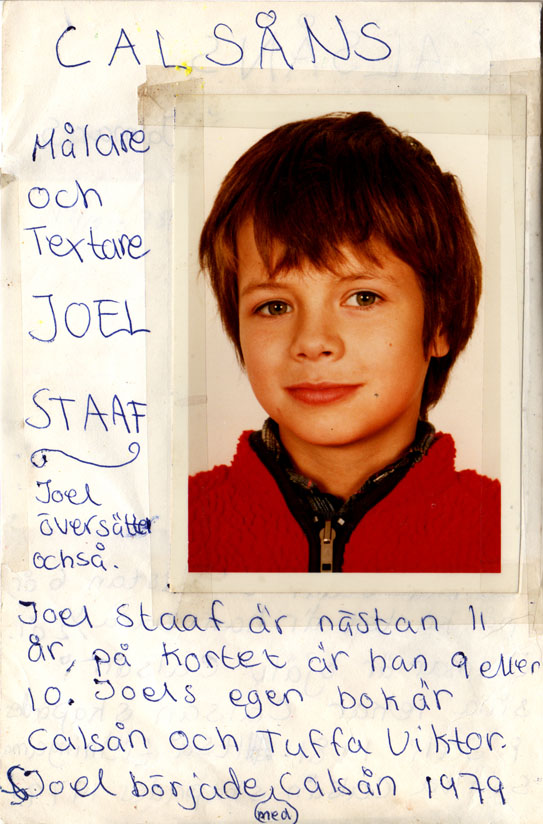 CALSÅNS
Målare
och
Textare
JOEL
STAAF
Joel
översätter
ochså.
Joel Staaf är nästan 11
år, på kortet är han 9 eller
10. Joels egen bok är
Calsån och Tuffa Viktor.
Joel började Calsån 1979
(med)